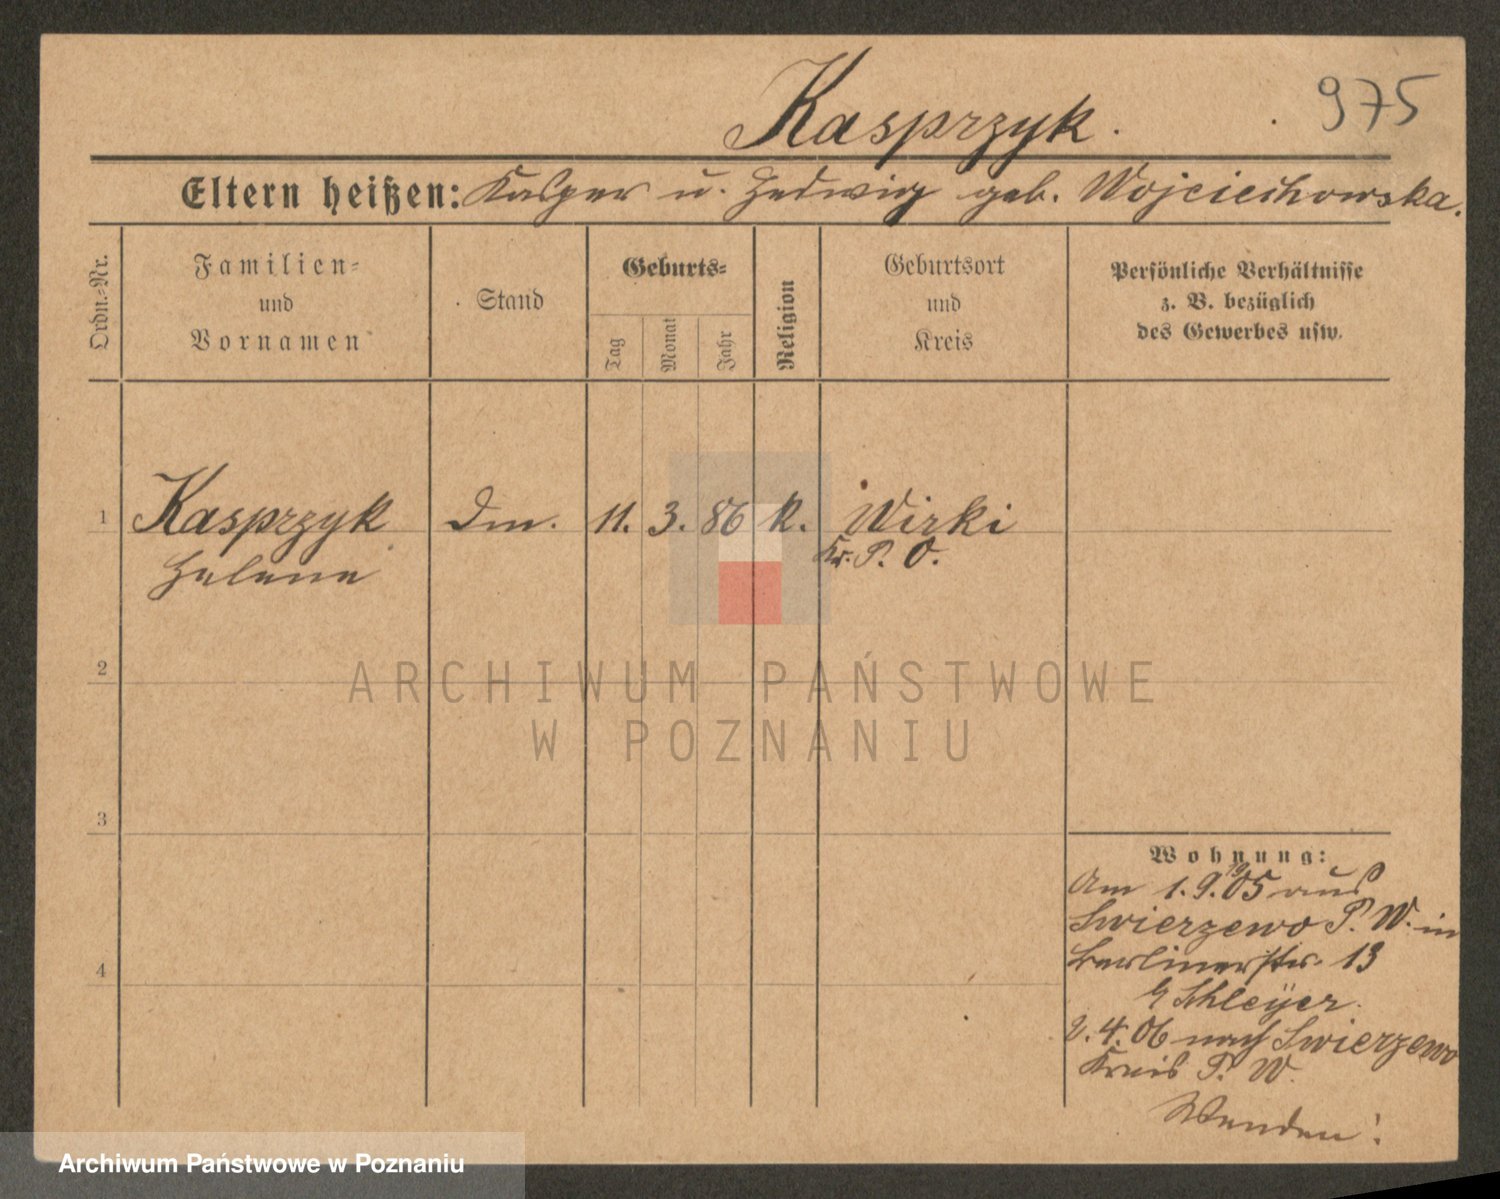 Kasprzyk.
975
Eltern heißen: Kasper u. Hedwig geb. Wojciechowska.
Ordn.-Nr.
Familien-
und
Vornamen
Stand
Geburts-
Tag
Monat
Jahr
Religion
Geburtsort
und
Kreis
Persönliche Verhältnisse
z. B. bezüglich
des Gewerbes usw.
1 Kasprzyk Dm. 11. 3. 86 k. Wirki
Helene Kr. P. O.
2
ARCHIWUM PAŃSTWOWE
W POZNANIU
3
Wohnung:
Am 1.9.05 aus
Swierzewo P. W. in
Berlinerstr. 13
b/ Schleyer.
2.4.06 nach Swierzewo
Kreis P. W.
Wenden!
4
Archiwum Państwowe w Poznaniu